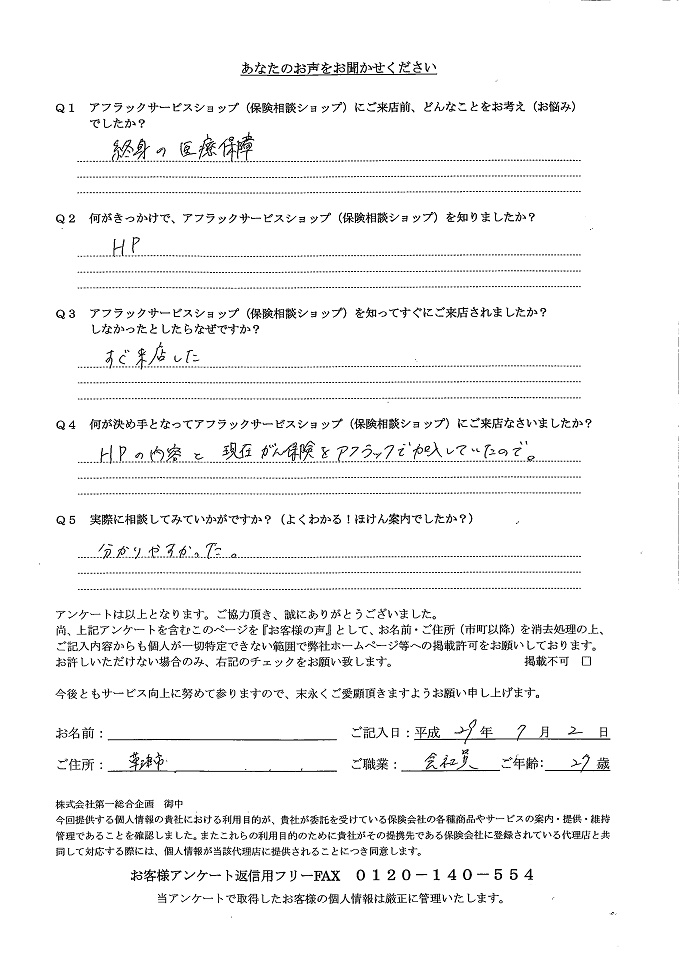 あなたのお声をお聞かせください
Q1 アフラックサービスショップ（保険相談ショップ）にご来店前、どんなことをお考え（お悩み）
でしたか？
終身の医療保障
Q2 何がきっかけで、アフラックサービスショップ（保険相談ショップ）を知りましたか？
HP
Q3 アフラックサービスショップ（保険相談ショップ）を知ってすぐにご来店されましたか？
しなかったとしたらなぜですか？
すぐ来店した
Q4 何が決め手となってアフラックサービスショップ（保険相談ショップ）にご来店なさいましたか？
HPの内容と現在がん保険をアフラックで加入していたので。
Q5 実際に相談してみていかがですか？（よくわかる！ほけん案内でしたか？）
分かりやすかった。
アンケートは以上となります。ご協力頂き、誠にありがとうございました。
尚、上記アンケートを含むこのページを『お客様の声』として、お名前・ご住所（市町以降）を消去処理の上、
ご記入内容からも個人が一切特定できない範囲で弊社ホームページ等への掲載許可をお願いしております。
お許しいただけない場合のみ、右記のチェックをお願い致します。 掲載不可 □
今後ともサービス向上に努めて参りますので、末永くご愛願頂きますようお願い申し上げます。
お名前： ご記入日：平成 29 年 7 月 2 日
ご住所： 草津市 ご職業： 会社員 ご年齢： 27 歳
株式会社第一総合企画 御中
今回提供する個人情報の貴社における利用目的が、貴社が委託を受けている保険会社の各種商品やサービスの案内・提供・維持
管理であることを確認しました。またこれらの利用目的のために貴社がその提携先である保険会社に登録されている代理店と共
同して対応する際には、個人情報が当該代理店に提供されることにつき同意します。
お客様アンケート返信用フリーFAX 0120－140－554
当アンケートで取得したお客様の個人情報は厳正に管理いたします。